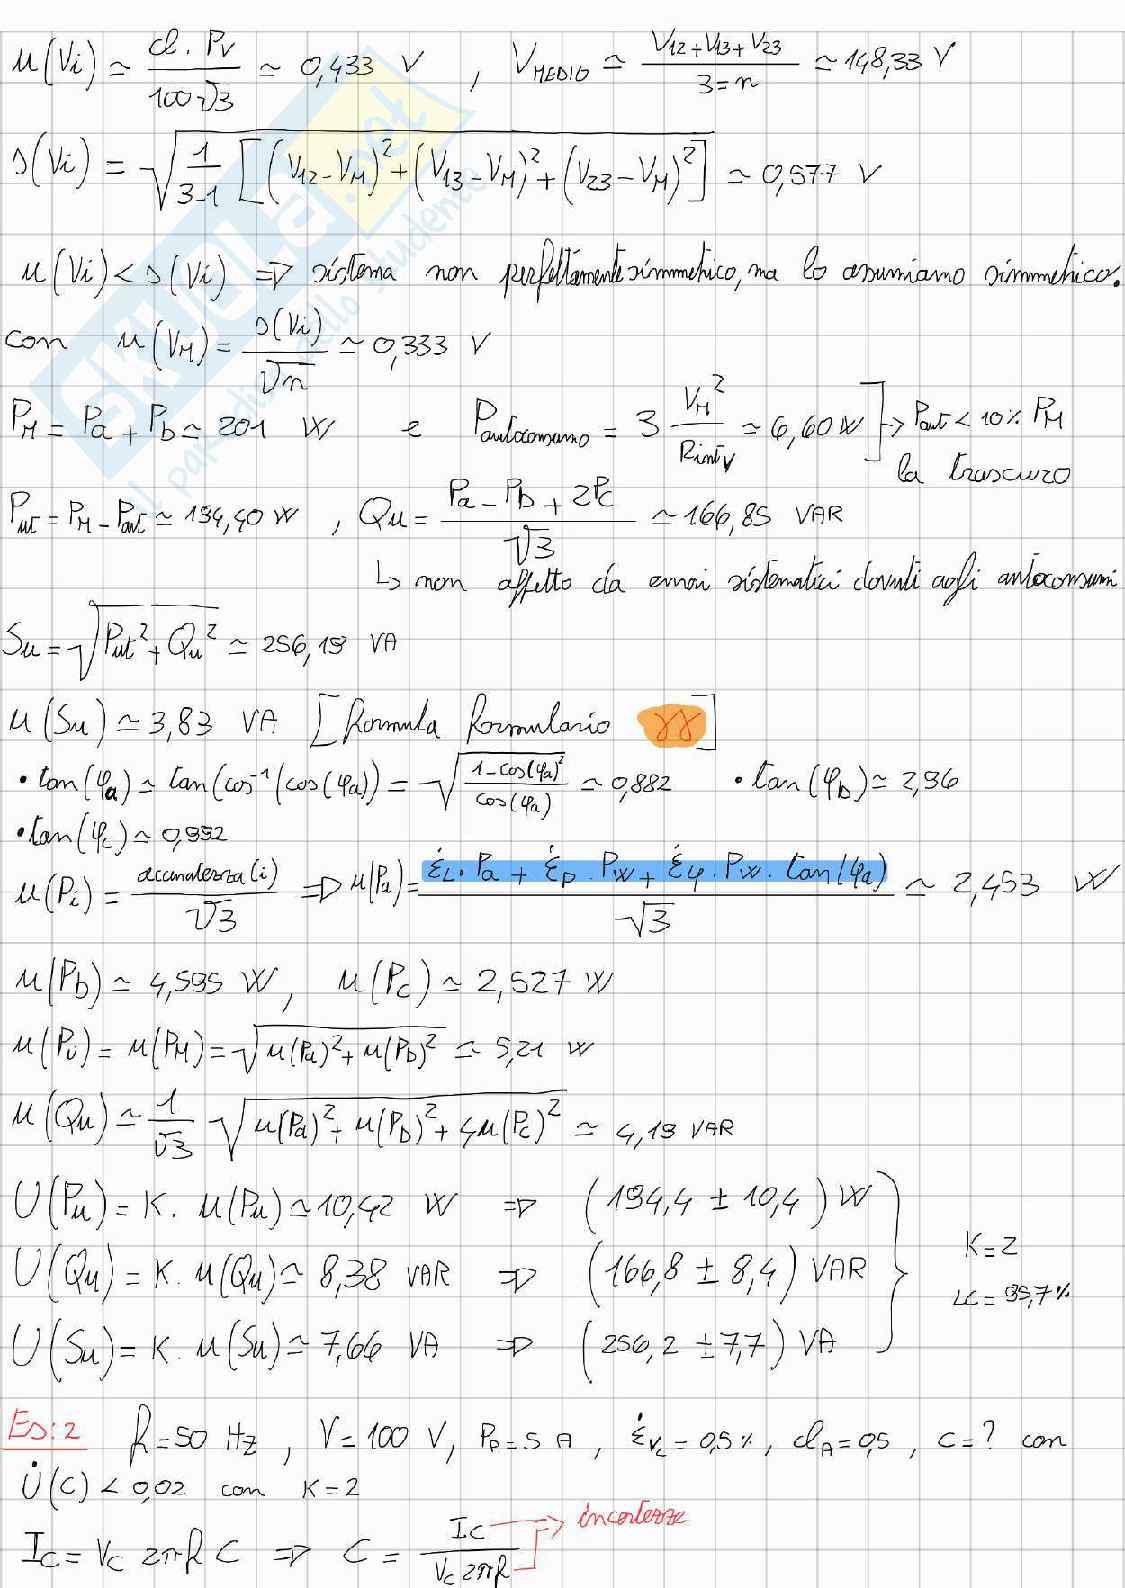 u(Vi) ≃ cl. Pv / 100√3 ≃ 0,433 V , VMEDIO ≃ V12+V13+V23 / 3=n ≃ 148,33 V
s(Vi) = √(1/3-1 [(V12-VM)²+(V13-VM)²+(V23-VM)²]) ≃ 0,577 V
u(Vi) < s(Vi) ⇒ sistema non perfettamente simmetrico, ma lo assumiamo simmetrico.
con u(VM) = s(Vi)/√n ≃ 0,333 V
PM = Pa + Pb ≃ 201 W e Pautoconsumo = 3 VM²/RintV ≃ 6,60 W ] → Paut < 10% PM
la trascuro
Put = PM - Paut ≃ 194,40 W , Qu = Pa - Pb + 2Pc / √3 ≃ 166,85 VAR
↳ non affetto da errori sistematici dovuti agli autoconsumi
Su = √(Put² + Qu²) ≃ 256,19 VA
u(Su) ≃ 3,83 VA [Formula formulario γγ]
• tan(φa) ≃ tan(cos⁻¹(cos(φa)) = √(1-cos(φa)² / cos(φa)) ≃ 0,882 • tan(φb) ≃ 2,96
• tan(φc) ≃ 0,992
u(Pi) = accuratezza(i)/√3 ⇒ u(Pa) = ε̇L. Pa + ε̇p. Pw + ε̇φ. Pw. tan(φa) / √3 ≃ 2,453 W
u(Pb) ≃ 4,595 W , u(Pc) ≃ 2,527 W
u(Pu) = u(PM) = √(u(Pa)² + u(Pb)²) ≃ 5,21 W
u(Qu) ≃ 1/√3 √(u(Pa)² + u(Pb)² + 4u(Pc)²) ≃ 4,19 VAR
U(Pu) = K. u(Pu) ≃ 10,42 W ⇒ (194,4 ± 10,4) W
U(Qu) = K. u(Qu) ≃ 8,38 VAR ⇒ (166,8 ± 8,4) VAR
K=2
LC = 95,7%
U(Su) = K. u(Su) ≃ 7,66 VA ⇒ (256,2 ± 7,7) VA
Es: 2 f = 50 Hz , V = 100 V, Pp = 5 A , ε̇Vc = 0,5% , clA = 0,5 , C = ? con
U̇(C) < 0,02 con K = 2
incertezze
Ic = Vc 2πf C ⇒ C = Ic / Vc 2πf
SKUOLA.net
il paradiso dello studente